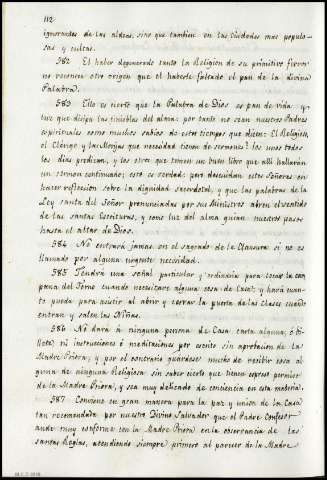 112
ignorantes de las aldeas, sino que tambien en las Ciudades mas populo-
sas y cultas.
582 El haber degenerado tanto la Religion de su primitivo fervor
no reconoce otro origen que el haberle faltado el pan de la divina
Palabra.
583 Ello es cierto que la Palabra de Dios es pan de vida y
luz que disipa las tinieblas del alma: por tanto no sean nuestros Padres
espirituales como muchos sabios de estos tiempos que dicen: El Religioso,
el Clérigo y las Monjas que necesidad tienen de sermones? los unos todos
los dias predican, y los otros que tomen un buen libro que allí hallarán
un sermon continuado; esto es verdad: pero descuidan estos Señores en
hacer reflecsion sobre la dignidad sacerdotal, y que las palabras de la
Ley santa del Señor pronunciadas por sus Ministros abren el sentido
de las santas Escrituras, y como luz del alma guian nuestros pasos
hasta el altar de Dios.
584 No entrará jamas en el sagrado de la Clausura si no es
llamado por alguna urgente necesidad.
585 Tendrá una señal particular y ordinaria para tocar la cam
pana del Torno cuando necesitare alguna cosa de Casa; y hará cuan-
to pueda para asistir al abrir y cerrar la puerta de las clases cuando
entran y salen las Niñas.
586 No dará á ninguna persona de Casa carta alguna, ó bi-
llete, ni instrucciones ó meditaciones por escrito sin aprobacion de la
Madre Priora; y por el contrario guárdese mucho de recibir cosa al
guna de ninguna Religiosa sin saber cierto que tienen espreso permiso
de la Madre Priora, y sea muy delicado de conciencia en esta materia.
587 Conviene en gran manera para la paz y union de la Casa
tan recomendada por nuestro Divino Salvador que el Padre Confesor
ande muy conforme con la Madre Priora en la observancia de las
santas Reglas, atendiendo siempre primero al parecer de la Madre